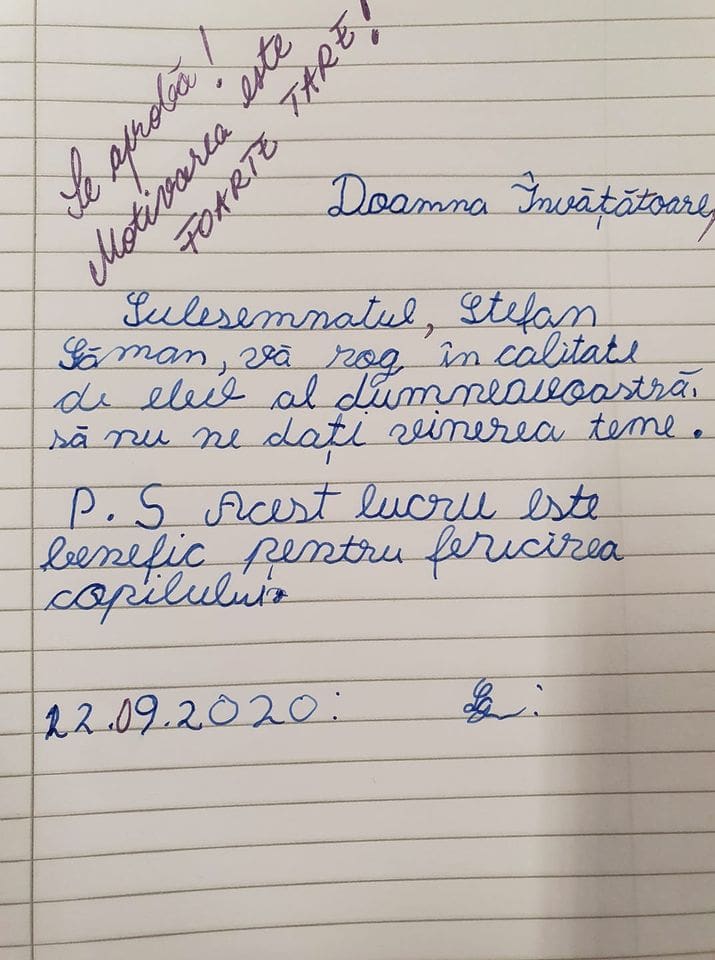 Se aprobă!
Motivarea este
FOARTE TARE!
Doamna Învățătoare,
Sulesemnatul, Ștefan
Găman, vă rog, în calitate
de elev al dumneavoastră,
să nu ne dați vinerea teme.
P.S Acest lucru este
benefic pentru fericirea
copilului.
22.09.2020: